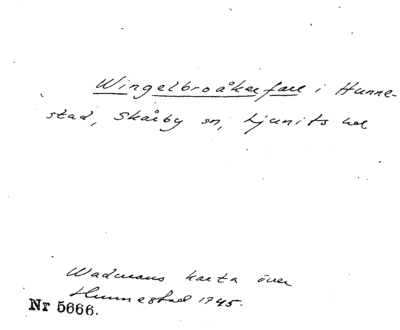 Wingelbroåkerfall i Hunne-
stad, Skårby sn, Ljunits hd
Wadmans karta över
Hunnestad 1745.
Nr 5666.